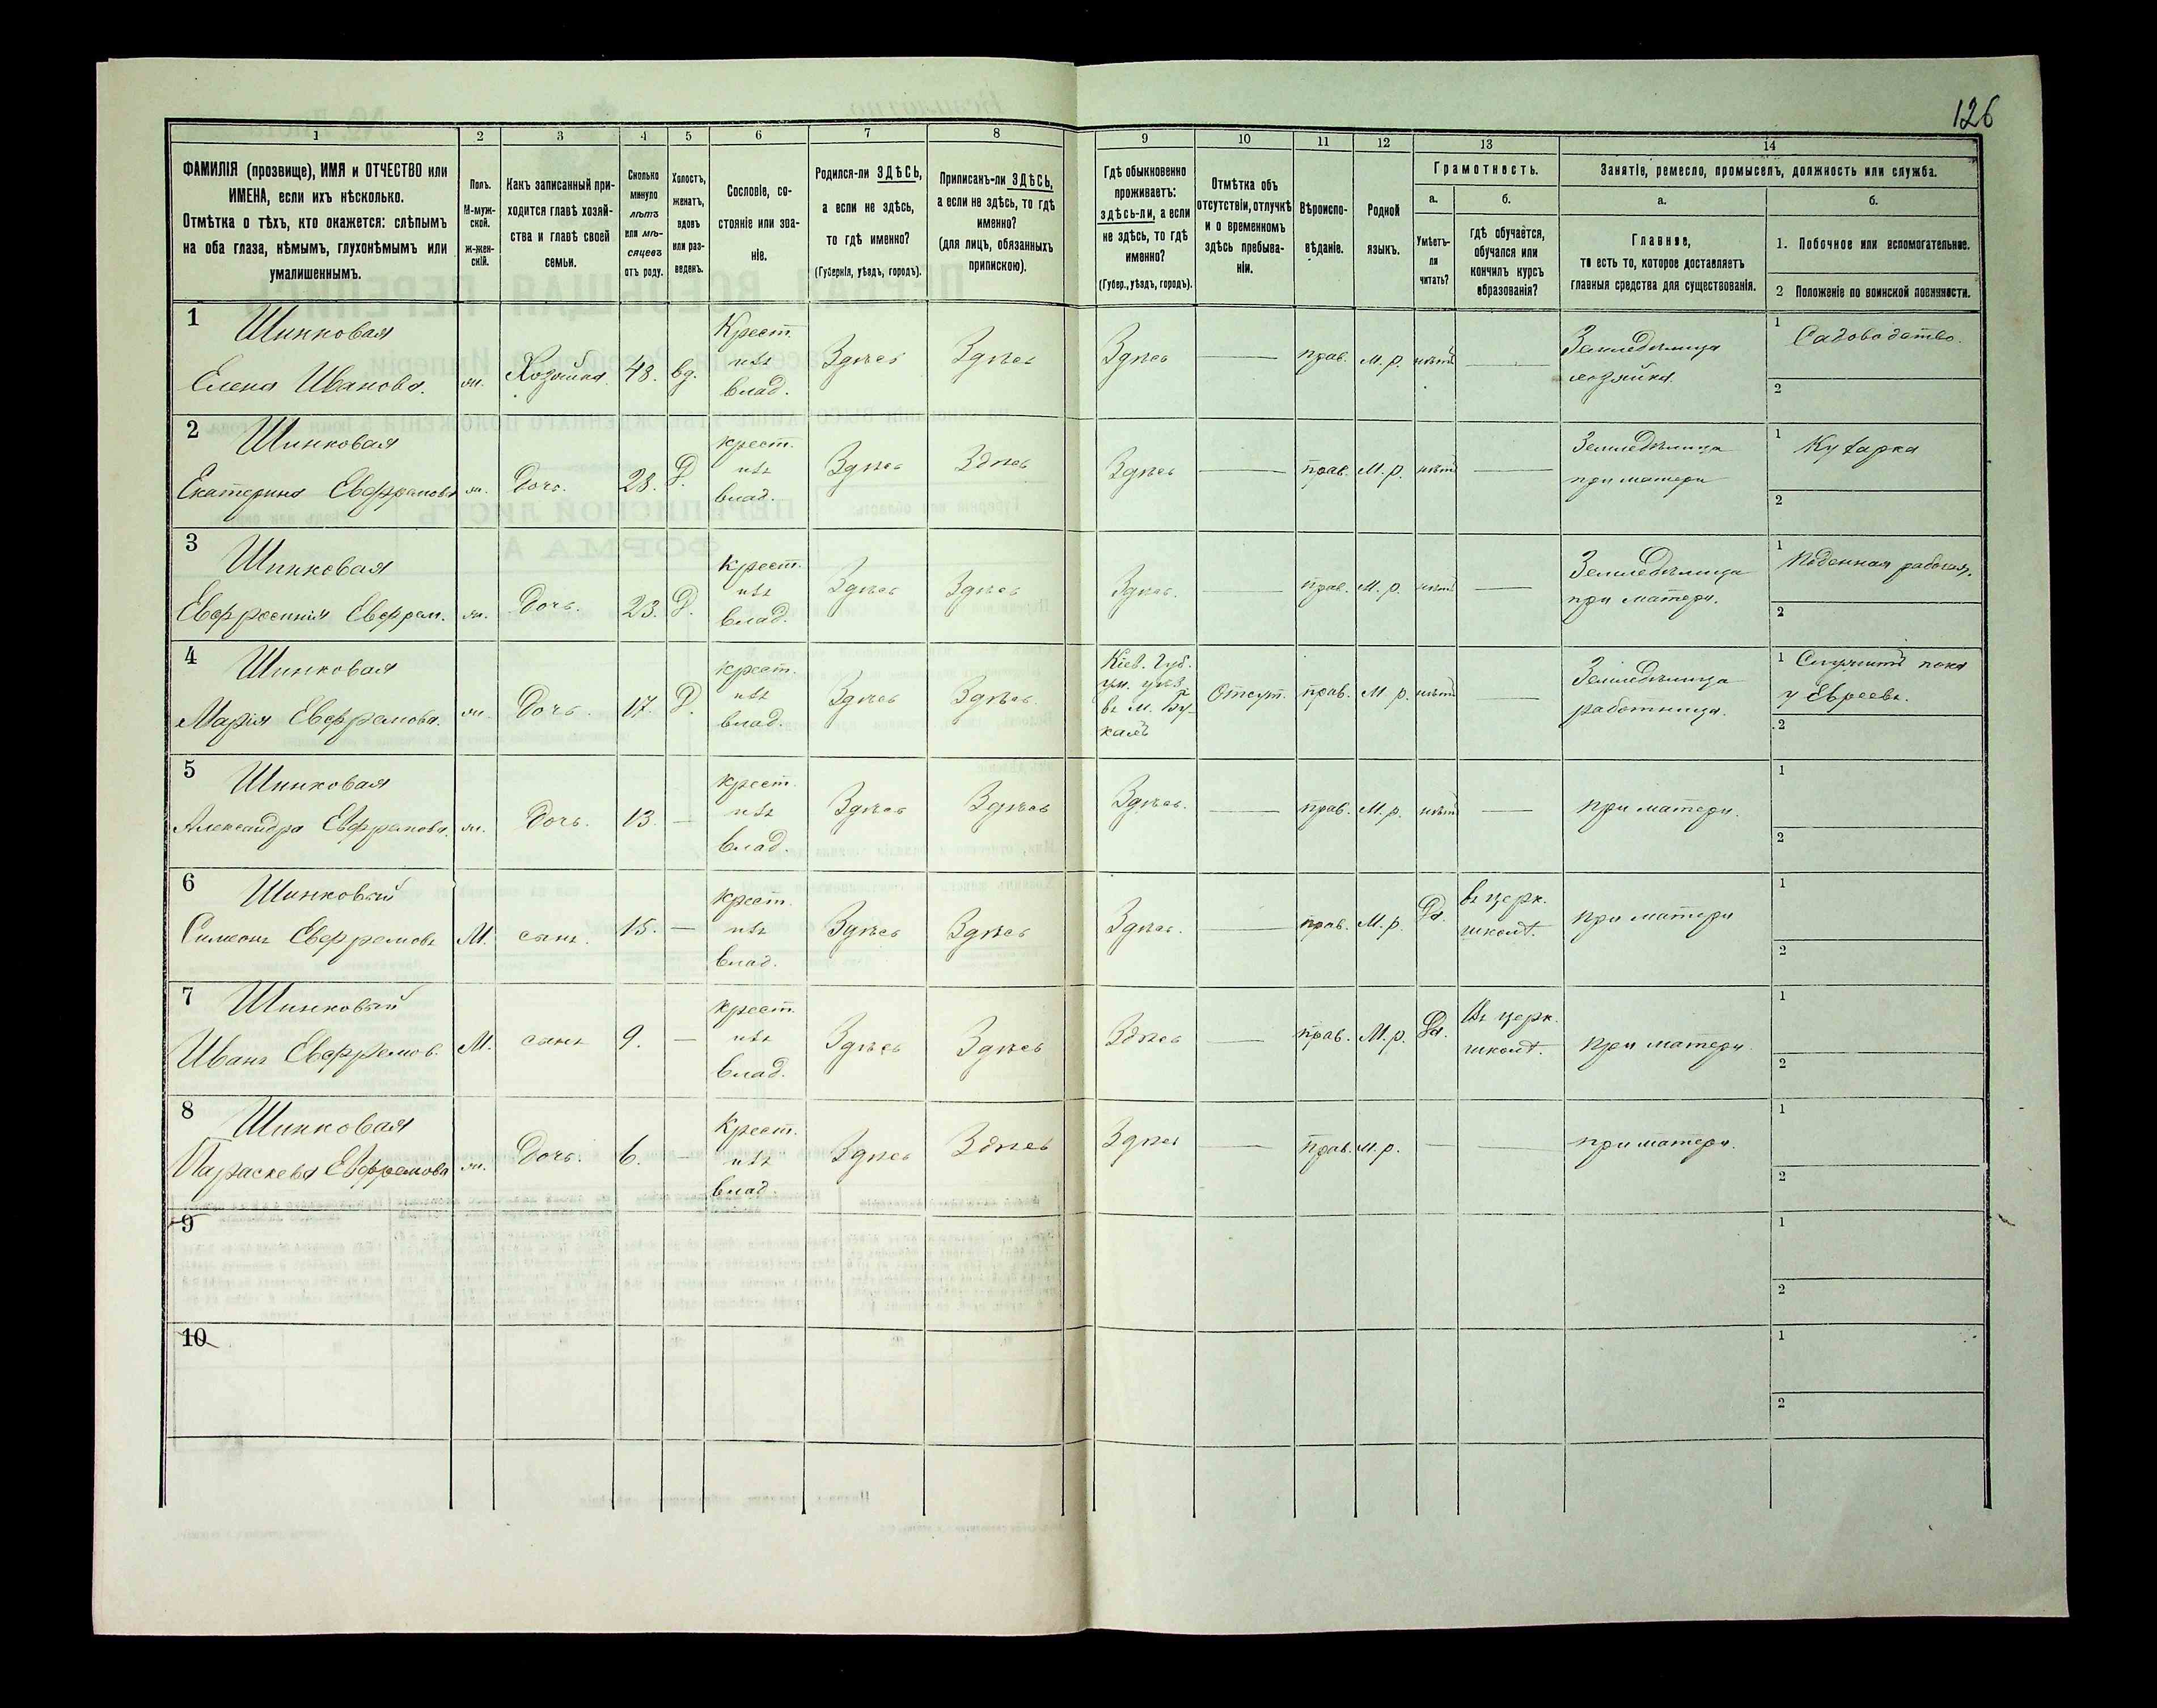 126
1 2 3 4 5 6 7 8 9 10 11 12 13 14
ФАМИЛІЯ (прозвище), ИМЯ и ОТЧЕСТВО или
ИМЕНА, если ихъ нѣсколько.
Отмѣтка о тѣхъ, кто окажется: слѣпымъ
на оба глаза, нѣмымъ, глухонѣмымъ или
умалишеннымъ.
Полъ.
М-муж-
ской.
Ж-жен-
скій.
Какъ записанный при-
ходится главѣ хозяй-
ства и главѣ своей
семьи.
Сколько
минуло
лѣтъ
или мѣ-
сяцевъ
отъ роду.
Холостъ,
женатъ,
вдовъ
или раз-
веденъ.
Сословіе, со-
стояніе или зва-
ніе.
Родился-ли ЗДѢСЬ,
а если не здѣсь,
то гдѣ именно?
(Губернія, уѣздъ, городъ).
Приписанъ-ли ЗДѢСЬ,
а если не здѣсь, то гдѣ
именно?
(для лицъ, обязанныхъ
припискою).
Гдѣ обыкновенно
проживаетъ:
здѣсь-ли, а если
не здѣсь, то гдѣ
именно?
(Губер., уѣздъ, городъ).
Отмѣтка объ
отсутствіи, отлучкѣ
и о временномъ
здѣсь пребыва-
ніи.
Вѣроиспо-
вѣданіе.
Родной
языкъ.
Грамотность.
а.
Умѣетъ-
ли
читать?
б.
гдѣ обучается,
обучался или
кончилъ курсъ
образованія?
Занятіе, ремесло, промыселъ, должность или служба.
а.
Главное,
то есть то, которое доставляетъ
главныя средства для существованія.
б.
1. Побочное или вспомогательное.
2 Положеніе по воинской повинности.
1 Шинковая
Елена Иванова. ж. Хозяйка 48. вд.
Крест.
изъ
влад.
Здѣсь Здѣсь Здѣсь — прав. М. р. нѣтъ —
Земледѣлица
хозяйка.
1 Садоводство.
2
2 Шинковая
Екатерина Евфремова ж. Дочь. 28. Д.
крест.
изъ
влад.
Здѣсь Здѣсь Здѣсь — прав. М. р. нѣтъ —
Земледѣлица
при матери
1 Кухарка
2
3 Шинковая
Евфросинія Евфрем. ж. Дочь. 23. Д.
крест.
изъ
влад.
Здѣсь Здѣсь Здѣсь. — прав. М. р. нѣтъ —
Земледѣлица
при матери.
1 Поденная работа.
2
4 Шинковая
Марія Евфремова. ж. Дочь. 17. Д.
крест.
изъ
влад.
Здѣсь Здѣсь.
Кіев. Губ.
ум. уѣз.
въ м. Бу-
калъ
Отсут. прав. М. р. нѣтъ —
Земледѣлица
работница.
1 Служитъ
у Евреевъ.
2
5 Шинковая
Александра Евфремова. ж. Дочь. 13. —
крест.
изъ
влад.
Здѣсь Здѣсь Здѣсь. — прав. М. р. нѣтъ — при матери.
1
2
6 Шинковый
Симеонъ Евфремовъ М. сынъ. 15. —
крест.
изъ
влад.
Здѣсь Здѣсь Здѣсь. — прав. М. р. Да.
въ церк.
школѣ.
при матери
1
2
7 Шинковый
Иванъ Евфремов. М. сынъ 9. —
крест.
изъ
влад.
Здѣсь Здѣсь Здѣсь — прав. М. р. Да.
Въ церк.
школѣ.
при матери
1
2
8 Шинковая
Параскева Евфремова ж. Дочь. 6. —
Крест.
изъ
влад.
Здѣсь Здѣсь Здѣсь — Прав. М. р. — — при матери.
1
2
9
1
2
10
1
2